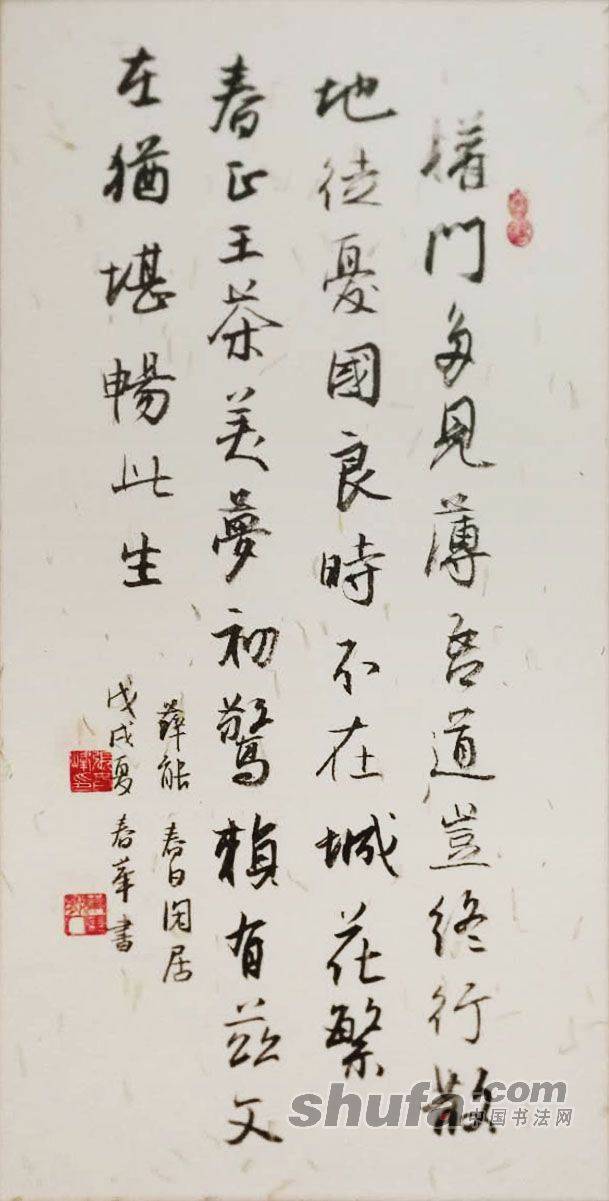 門多見薄吾道豈終行散
地徒憂國良時不在城花繁
春正王茶美夢初驚賴有茲文
在猶堪暢此生
薛能 春日閑居
戊戌夏春華書
shufa.com
中国书法网